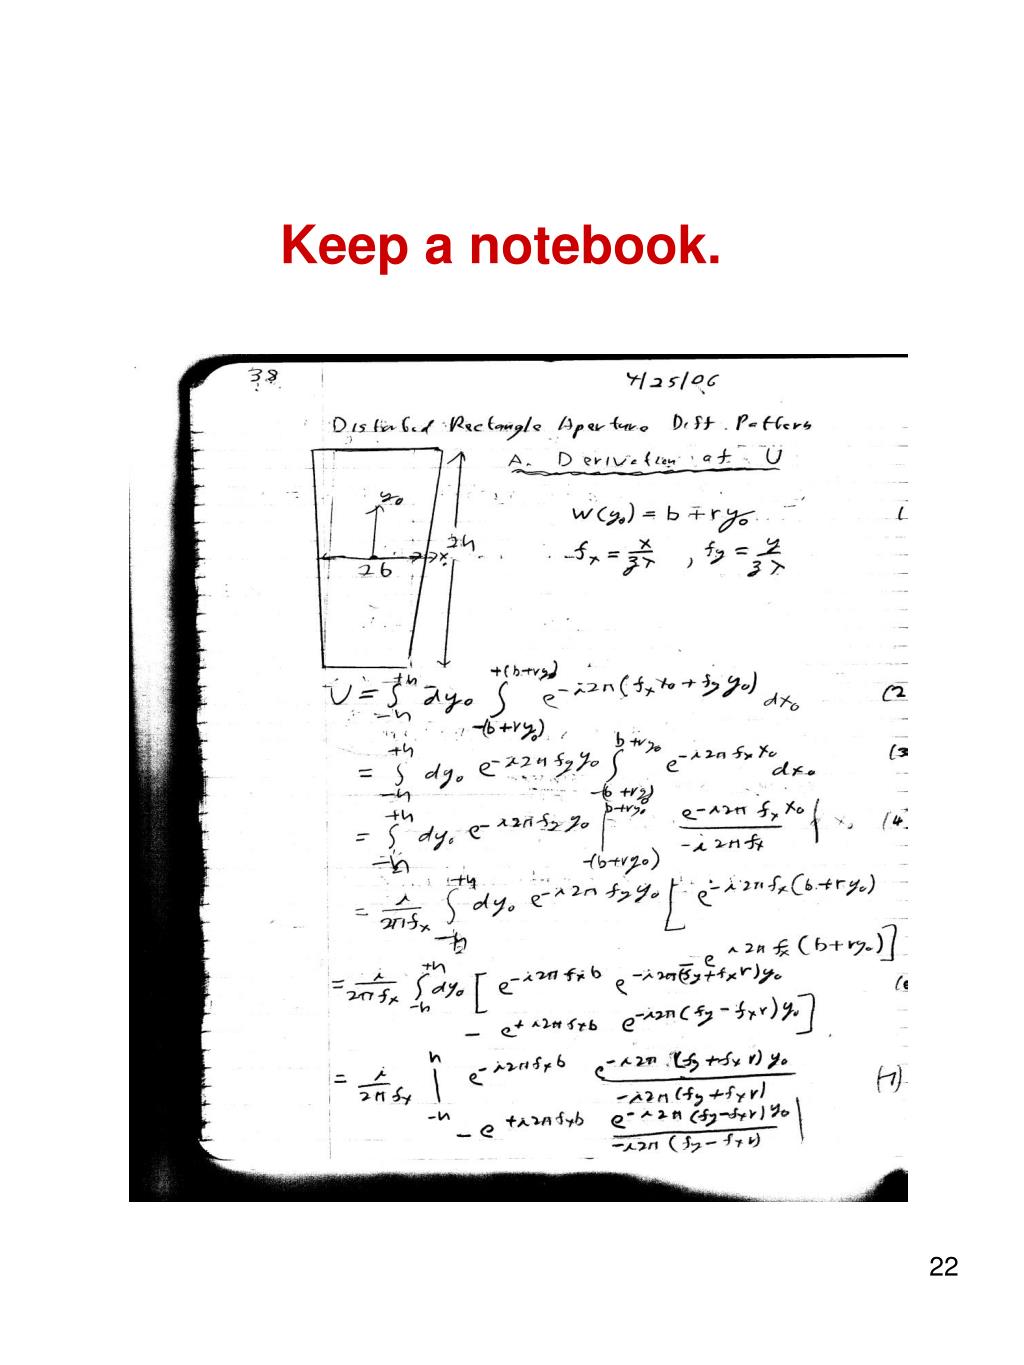 Keep a notebook.
38
4/25/06
Distorted Rectangle Aperture Diff. Pattern
A. Derivation of U
y₀
2h
x₀
2b
W(y₀) = b + ry₀
f_x = x/(zλ) , f_y = y/(zλ)
U = ∫_{-h}^{+h} dy₀ ∫_{-(b+ry₀)}^{+(b+ry₀)} e^{-i2π(f_x x₀ + f_y y₀)} dx₀ (2
= ∫_{-h}^{+h} dy₀ e^{-i2π f_y y₀} ∫_{-(b+ry₀)}^{b+ry₀} e^{-i2π f_x x₀} dx₀ (3
= ∫_{-h}^{+h} dy₀ e^{-i2π f_y y₀} |_{-(b+ry₀)}^{b+ry₀} e^{-i2π f_x x₀}/(-i2π f_x) | (4
= i/(2π f_x) ∫_{-h}^{+h} dy₀ e^{-i2π f_y y₀} [ e^{-i2π f_x (b+ry₀)}
- e^{i2π f_x (b+ry₀)} ]
= i/(2π f_x) ∫_{-h}^{+h} dy₀ [ e^{-i2π f_x b} e^{-i2π(f_y+f_x r)y₀} (6
- e^{+i2π f_x b} e^{-i2π(f_y - f_x r)y₀} ]
= i/(2π f_x) |_{-h}^{h} e^{-i2π f_x b} e^{-i2π(f_y+f_x r)y₀}/(-i2π(f_y+f_x r)) (7)
- e^{+i2π f_x b} e^{-i2π(f_y-f_x r)y₀}/(-i2π(f_y-f_x r)) |
22